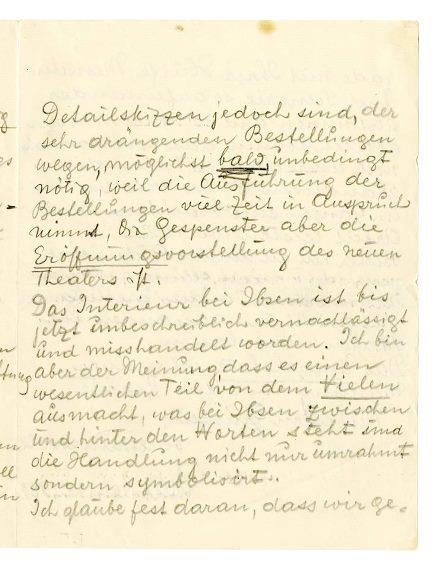 Detailskizzen jedoch sind, der
sehr drängenden Bestellungen
wegen, möglichst bald, unbedingt
nötig, weil die Ausführung der
Bestellungen viel Zeit in Anspruch
nimmt, Da Gespenster aber die
Eröffnungsvorstellung des neuen
Theaters ist.
Das Interieur bei Ibsen ist bis
jetzt unbeschreiblich vernachlässigt
und misshandelt worden. Ich bin
aber der Meinung dass es einen
wesentlichen Teil von dem Vielen
ausmacht, was bei Ibsen zwischen
und hinter den Worten steht und
die Handlung nicht nur umrahmt
sondern symbolisirt.
Ich glaube fest daran, dass wir ge-